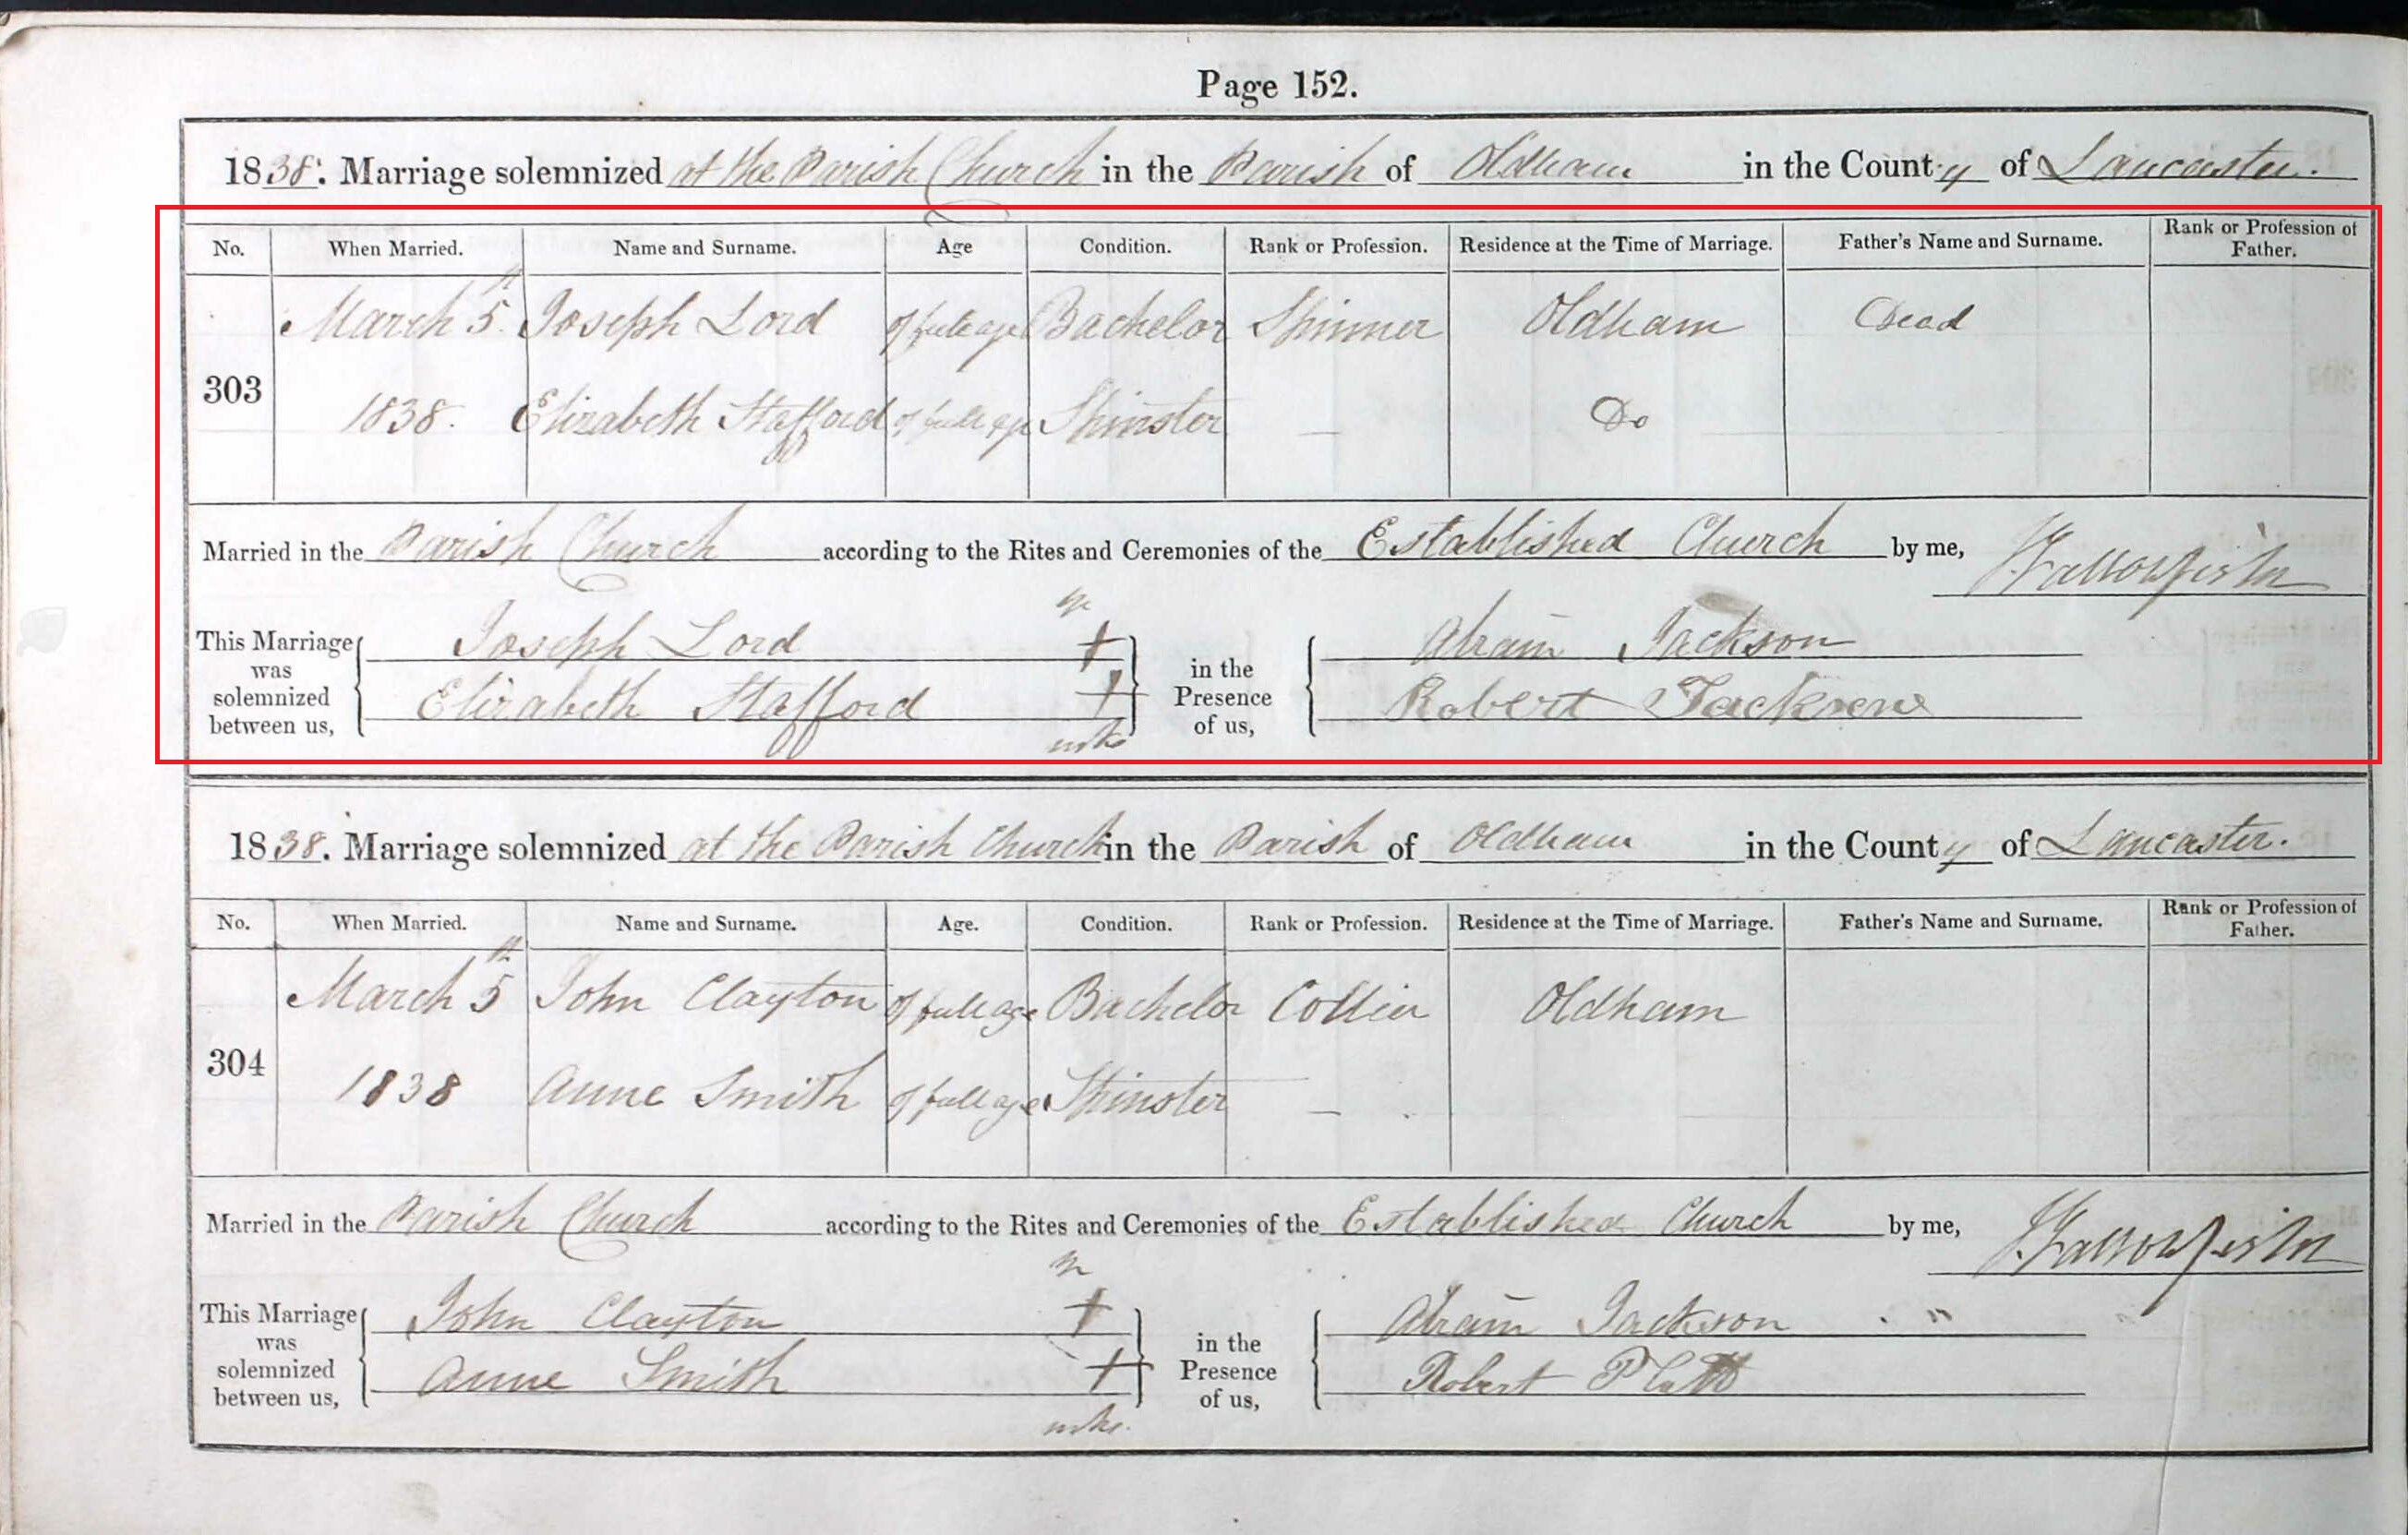 Page 152.
1838. Marriage solemnized at the Parish Church in the Parish of Oldham in the County of Lancaster.
No. When Married. Name and Surname. Age Condition. Rank or Profession. Residence at the Time of Marriage. Father's Name and Surname. Rank or Profession of Father.
303 March 5th Joseph Lord of full age Bachelor Spinner Oldham Dead
1838. Elizabeth Stafford of full age Spinster — Do
Married in the Parish Church according to the Rites and Ceremonies of the Established Church by me,
This Marriage was solemnized between us, Joseph Lord + in the Presence of us, Abram Jackson
Elizabeth Stafford + Robert Jackson
1838. Marriage solemnized at the Parish Church in the Parish of Oldham in the County of Lancaster.
No. When Married. Name and Surname. Age. Condition. Rank or Profession. Residence at the Time of Marriage. Father's Name and Surname. Rank or Profession of Father.
304 March 5th John Clayton of full age Bachelor Collier Oldham
1838 Anne Smith of full age Spinster —
Married in the Parish Church according to the Rites and Ceremonies of the Established Church by me,
This Marriage was solemnized between us, John Clayton + in the Presence of us, Abram Jackson "
Anne Smith + Robert Platt